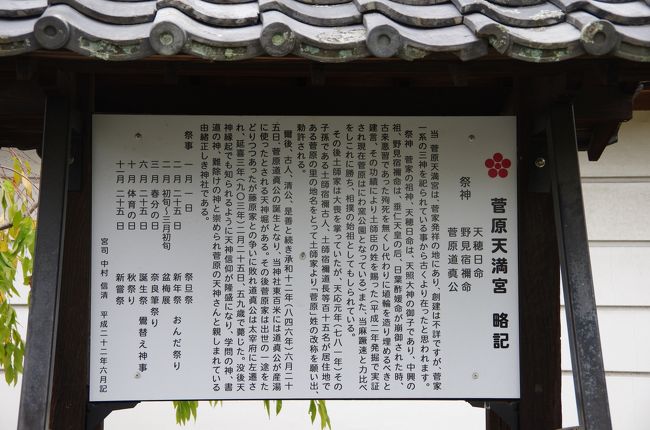 菅原天満宮 略記
祭神 天穂日命
野見宿禰命
菅原道真公
当 菅原天満宮は、菅家発祥の地にあり、創建は不祥ですが、菅家
一系の三神を祀られている事から古くより在ったと思われます。
祭神 菅家の祖神、天穂日命は、天照大神の御子であり、中興の
祖、野見宿禰命は、垂仁天皇の后、日葉酢媛命が崩御された時、
古来悪習であった殉死を無くし代わりに埴輪を造り埋めるべきと
建言、その功績により土師臣の姓を賜った(平成二年発掘で実証
され現在菅原はにわ窯公園となっている)また、当麻蹶速と力比べ
をしこれに勝ち、相撲の始祖としてもしられている。
その後土師家は大喪を掌っていたが、天応元年(七八一年)その
子孫である土師宿禰古人、土師宿禰道長等百十五名が居住地で
ある菅原の里の地名をとって土師家より「菅原」姓の改称を願い出、
勅許される。
爾後、古人、清公、是善と続き承和十二年(八四六年)六月二十
五日、菅原道真公の誕生となり、当神社東百米には道真公が産湯
に使ったとされる天神堀がある。その後菅原家は出世の一途をた
どりつつあったが藤原家との争いに敗れ道真公は太宰府に左遷さ
れ、延喜三年(九〇三年)二月二十五日、五九歳で薨じた。没後天
神縁起でも知られるように天神信仰が隆盛になり、学問の神、書
道の神、難除けの神と崇められ菅原の天神さんと親しまれている
由緒正しき神社である。
祭事 一月一日 祭旦祭
二月二十五日 新年祭 おんだ祭り
二月初旬〜三月初旬 盆梅展
三月春分の日 奈良筆祭り
六月二十五日 誕生祭 鷽替え神事
十月体育の日 秋祭り
十一月二十五日 新嘗祭
宮司 中村 信清 平成二十二年六月記